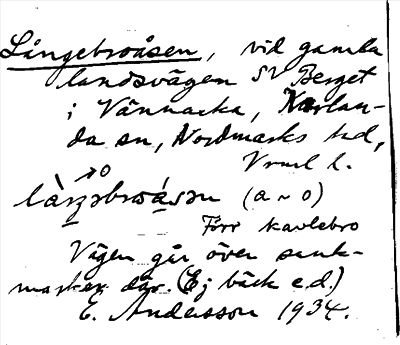 Långebroåsen, vid gamla
landsvägen SV Berget
i Vännacka, Karlan-
da sn, Nordmarks hd,
Vrml l.
→o
làŋ̀əbroásən (a ~ o)
Förr kavlebro
Vägen går över sank-
marken där. (Ej bäck e.d.)
E. Andersson 1934.